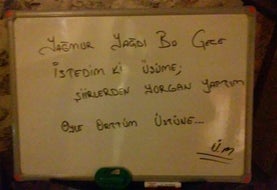 Yağmur Yağdı Bu Gece
İstedim ki üşüme;
şiirlerden yorgan yaptım
Öyle örttüm üstüne...
Ü.M